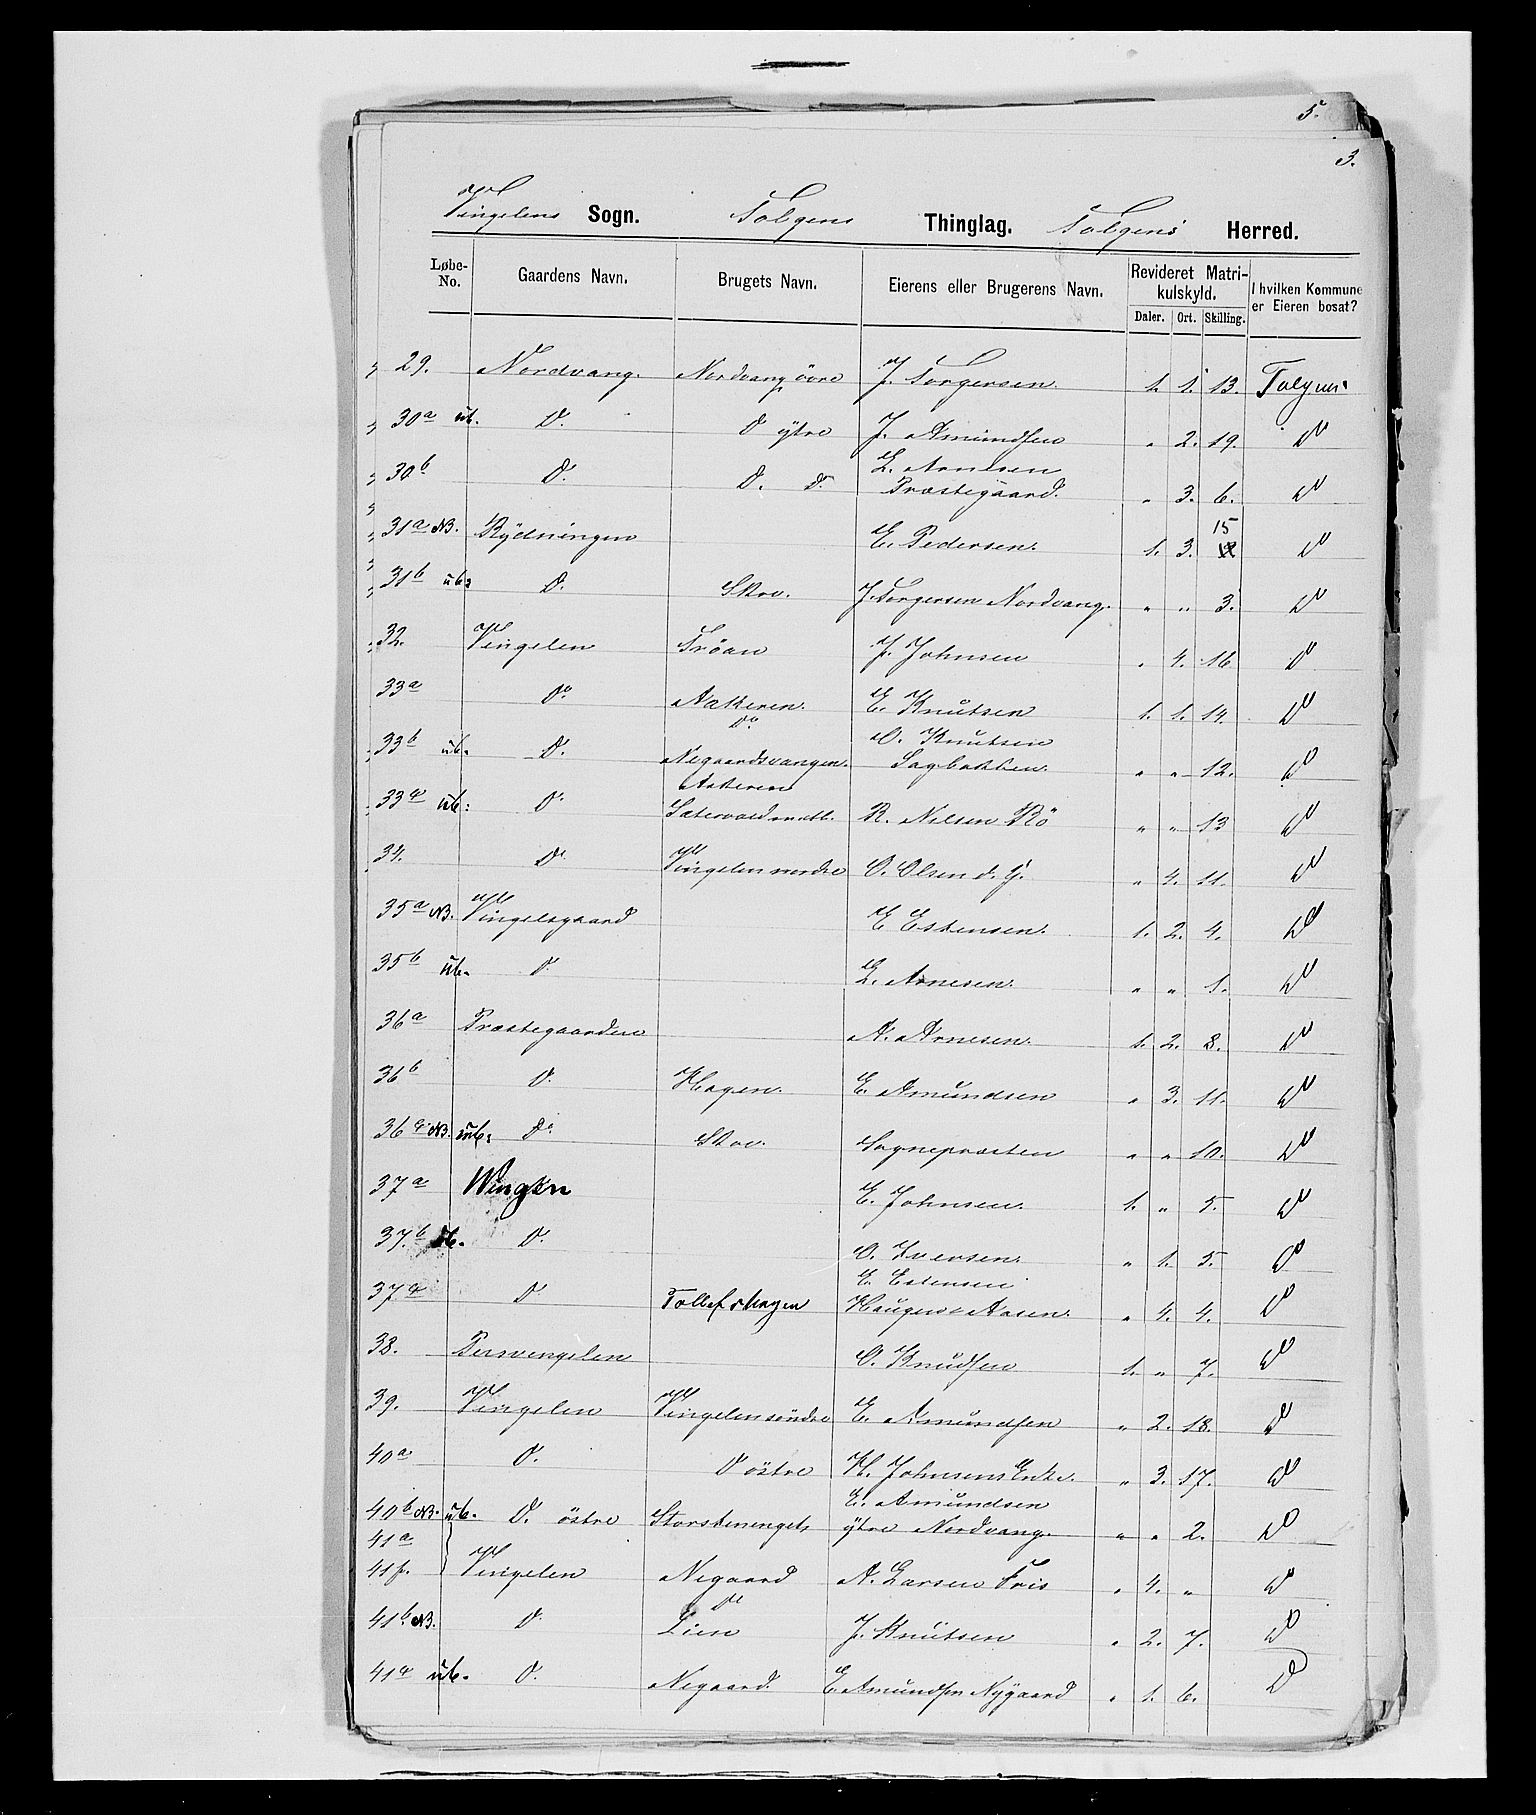 5.
3.
Vingelens Sogn. Tolgens Thinglag. Tolgens Herred.
Løbe-No. Gaardens Navn. Brugets Navn. Eierens eller Brugerens Navn. Revideret Matrikulskyld. Daler. Ort. Skilling. I hvilken Kommune er Eieren bosat?
29. Nordvang. Nordvang övre J. Torgersen. 1. 1. 13. Tolgens
30a ub. Do. Do ytre J. Amundsen „ 2. 19. Do
30b Do. Do. Do. L. Arnesen Præstegaard. „ 3. 6. Do
31a NB. Rydningen E. Pedersen. 1. 3. 15 Do
31b ub: Do. Skov. J. Torgersen Nordvang. „ „ 3. Do
32. Vingelen Tröan J. Johnsen „ 4. 16 Do
33a Do. Aakeren. E. Knutsen 1. 1. 14. Do
33b ub. Do. Do Negaardsvangen. O. Knutsen Sagbakken. „ „ 12. Do
33c ub: Do. Aakeren R. Nilsen Rö „ „ 13 Do
34. Do. Vingelen nordre O. Olsen d. y. „ 4. 11. Do
35a NB. Vingelsgaard E Estensen. 1. 2. 4. Do
35b ub. Do. L. Arnesen. „ „ 1. Do
36a Præstegaarden A. Arnesen. 1. 2. 8. Do
36b Do. Hagen. E. Amundsen „ 3. 11. Do
36c NB. ub: Do. Skov. Sognepræsten „ „ 10. Do
37a Wingen E. Johnsen. 1. „ 5. Do
37.b ub. Do. O. Iversen. „ 1. 5. Do
37c Do Tollefshagen E. Estensen Haugens Aasen. „ 4. 4. Do
38. Persvengelen O. Knudsen 1. „ 7. Do
39. Vingelen Vingelen söndre E. Amundsen „ 2. 18. Do
40a Do. Do östre H. Johnsens Enke. „ 3. 17. Do
40b NB. ub. Do. östre Storstenengets E. Amundsen ytre Nordvang. „ „ 2. Do
41a
41f. Vingelen Negaard A. Larsen Fris „ 4. „ Do
41b. NB. Do. Do Lien J. Knutsen „ 2. 7. Do
41c ub. Do. Negaard. E Amundsen Nygaard „ 1. 6. Do